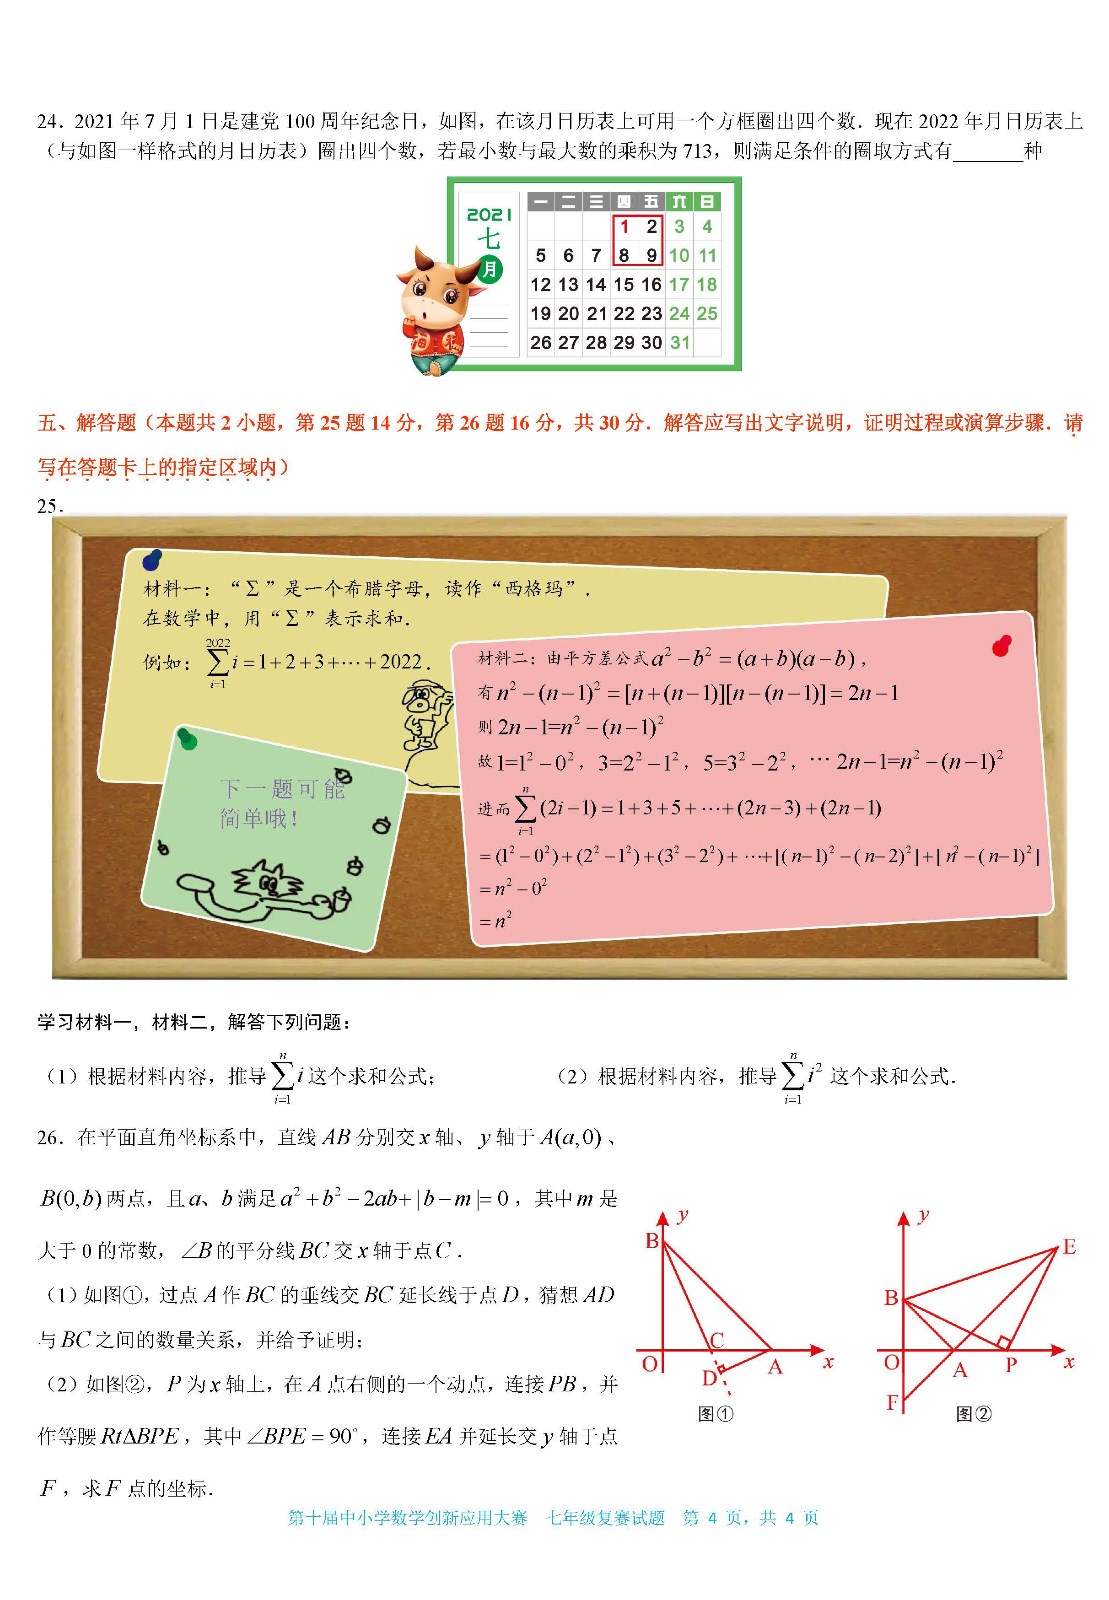 24．2021 年 7 月 1 日是建党 100 周年纪念日，如图，在该月日历表上可用一个方框圈出四个数．现在 2022 年月日历表上
（与如图一样格式的月日历表）圈出四个数，若最小数与最大数的乘积为 713，则满足条件的圈取方式有_______种
2021
七
月
福
一 二 三 四 五 六 日
1 2 3 4
5 6 7 8 9 10 11
12 13 14 15 16 17 18
19 20 21 22 23 24 25
26 27 28 29 30 31
五、解答题（本题共 2 小题，第 25 题 14 分，第 26 题 16 分，共 30 分．解答应写出文字说明，证明过程或演算步骤．请
写在答题卡上的指定区域内）
25．
材料一：“∑”是一个希腊字母，读作“西格玛”．
在数学中，用“∑”表示求和．
例如：$\sum_{i=1}^{2022} i=1+2+3+\cdots+2022$．
材料二：由平方差公式$a^2-b^2=(a+b)(a-b)$，
有$n^2-(n-1)^2=[n+(n-1)][n-(n-1)]=2n-1$
则$2n-1=n^2-(n-1)^2$
故$1=1^2-0^2$，$3=2^2-1^2$，$5=3^2-2^2$，$\cdots$ $2n-1=n^2-(n-1)^2$
进而$\sum_{i=1}^{n}(2i-1)=1+3+5+\cdots+(2n-3)+(2n-1)$
$=(1^2-0^2)+(2^2-1^2)+(3^2-2^2)+\cdots+[(n-1)^2-(n-2)^2]+[n^2-(n-1)^2]$
$=n^2-0^2$
$=n^2$
下一题可能
简单哦！
学习材料一，材料二，解答下列问题：
（1）根据材料内容，推导$\sum_{i=1}^{n} i$这个求和公式； （2）根据材料内容，推导$\sum_{i=1}^{n} i^2$这个求和公式．
26．在平面直角坐标系中，直线 AB 分别交 x 轴、y 轴于 A(a,0)、
B(0,b)两点，且 a、b 满足$a^2+b^2-2ab+|b-m|=0$，其中 m 是
大于 0 的常数，∠B 的平分线 BC 交 x 轴于点 C．
（1）如图①，过点 A 作 BC 的垂线交 BC 延长线于点 D，猜想 AD
与 BC 之间的数量关系，并给予证明；
（2）如图②，P 为 x 轴上，在 A 点右侧的一个动点，连接 PB，并
作等腰 RtΔBPE，其中∠BPE=90°，连接 EA 并延长交 y 轴于点
F，求 F 点的坐标．
y
B
C
O
D
A
x
图①
y
E
B
O
A
P
x
F
图②
第十届中小学数学创新应用大赛 七年级复赛试题 第 4 页，共 4 页